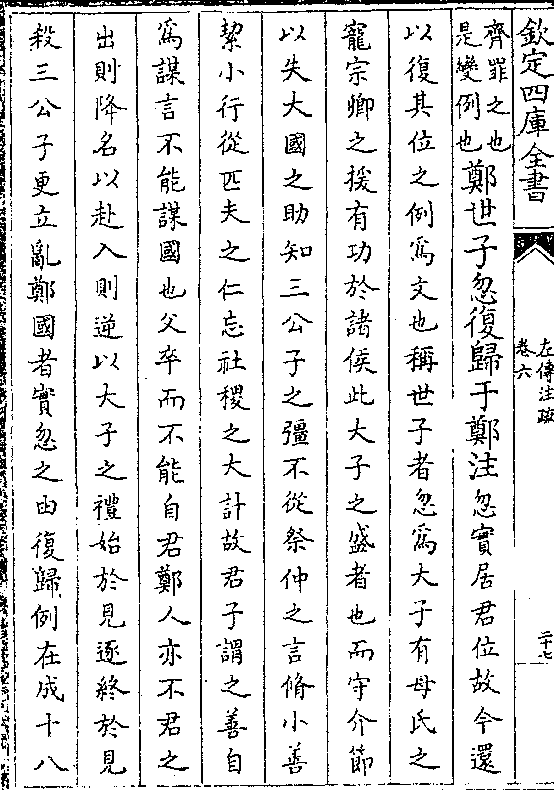 欽定四庫全書
左傳注疏
卷六
二十七
齊罪之也
是變例也
鄭世子忽復歸于鄭注忽實居君位故今還
以復其位之例爲文也稱世子者忽爲大子有母氏之
寵宗卿之援有功於諸侯此大子之盛者也而守介節
以失大國之助知三公子之彊不從祭仲之言脩小善
絜小行從匹夫之仁忘社稷之大計故君子謂之善自
爲謀言不能謀國也父卒而不能自君鄭人亦不君之
出則降名以赴入則逆以大子之禮始於見逐終於見
殺三公子更立亂鄭國者實忽之由復歸例在成十八